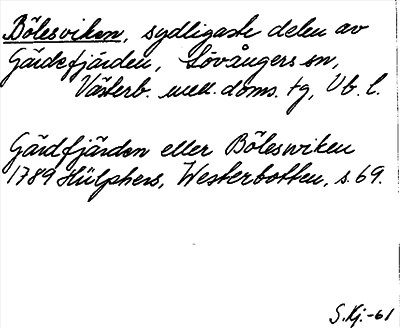 Bölesviken, sydligaste delen av
Gärdefjärden, Lövångers sn,
Västerb. mell. doms. tg, Vb. l.
Gärdfjärden eller Böleswiken
1789 Hülphers, Westerbotten, s. 69.
S.Kj.-61